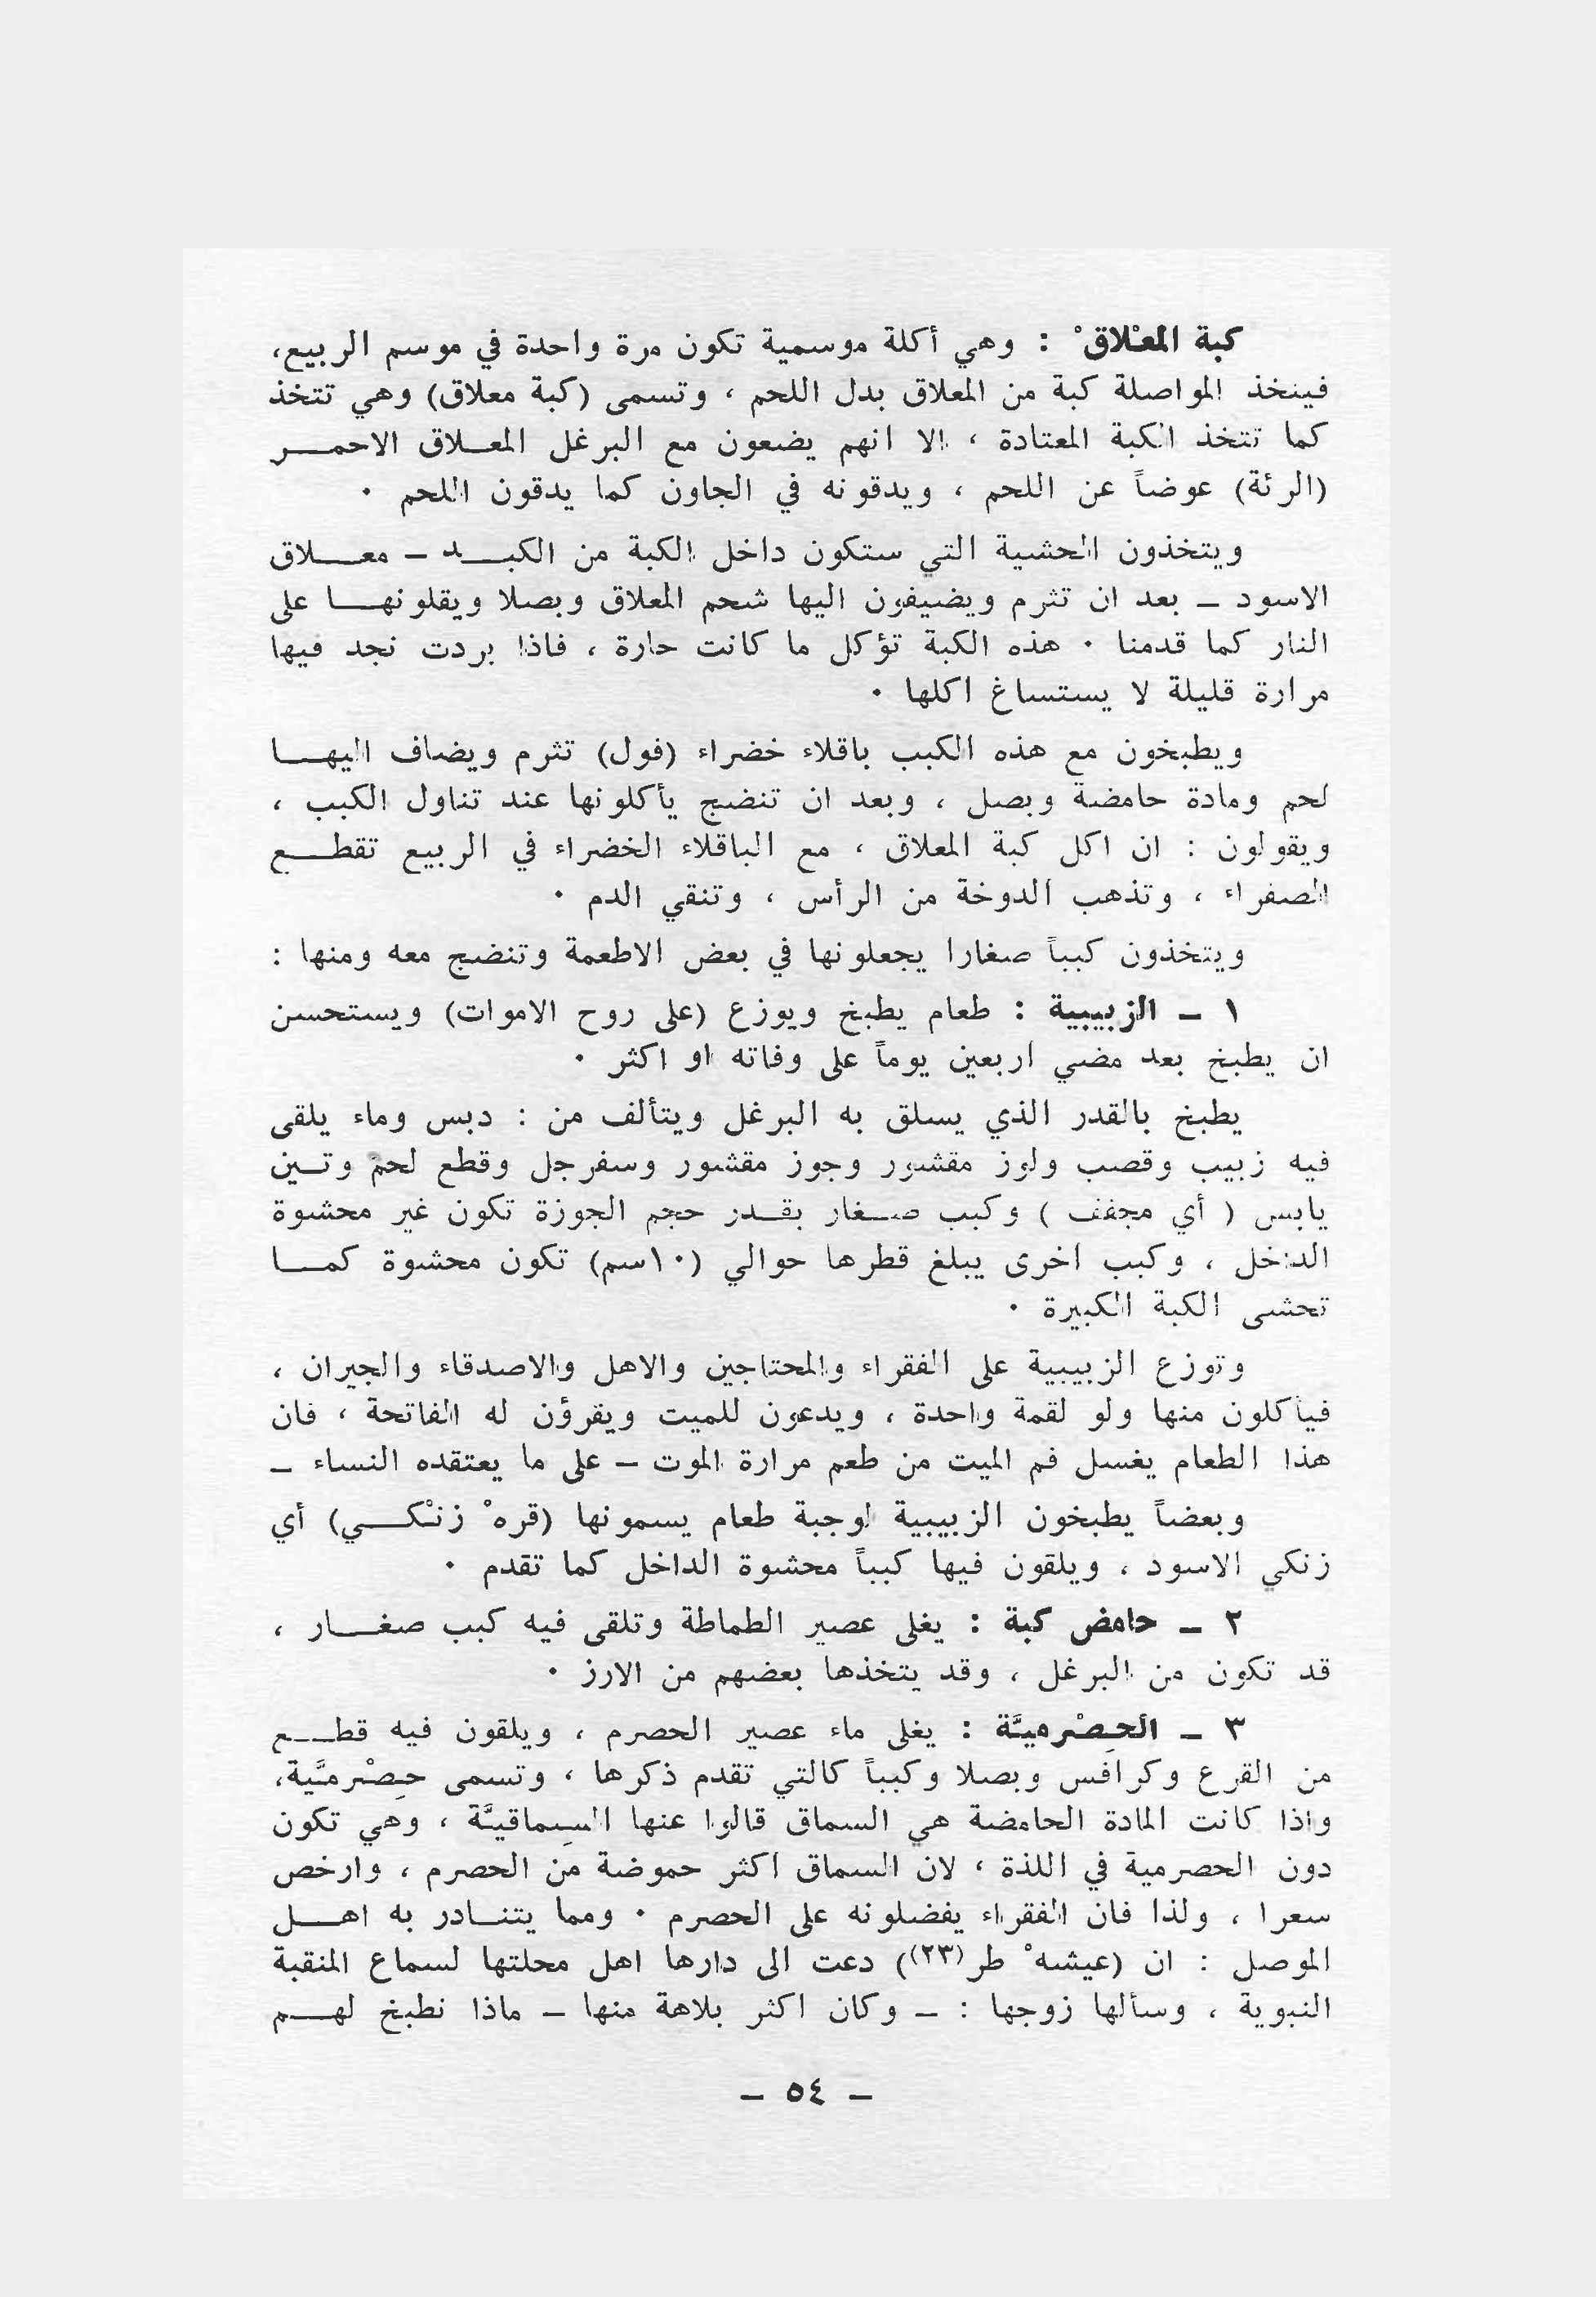 كبة المعْلاقْ : وهي أكلة موسمية تكون مرة واحدة في موسم الربيع،
فيتخذ المواصلة كبة من المعلاق بدل اللحم ، وتسمى (كبة معلاق) وهي تتخذ
كما تتخذ الكبة المعتادة ، الا انهم يضعون مع البرغل المعلاق الاحمر
(الرئة) عوضاً عن اللحم ، ويدقونه في الجاون كما يدقون اللحم ٠
ويتخذون الحشية التي ستكون داخل الكبة من الكبد – معلاق
الاسود – بعد ان تثرم ويضيفون اليها شحم المعلاق وبصلا ويقلونها على
النار كما قدمنا ٠ هذه الكبة تؤكل ما كانت حارة ، فاذا بردت نجد فيها
مرارة قليلة لا يستساغ اكلها ٠
ويطبخون مع هذه الكبب باقلاء خضراء (فول) تثرم ويضاف اليها
لحم ومادة حامضة وبصل ، وبعد ان تنضج يأكلونها عند تناول الكبب ،
ويقولون : ان اكل كبة المعلاق ، مع الباقلاء الخضراء في الربيع تقطع
الصفراء ، وتذهب الدوخة من الرأس ، وتنقي الدم ٠
ويتخذون كبباً صغارا يجعلونها في بعض الاطعمة وتنضج معه ومنها :
١ – الزبيبية : طعام يطبخ ويوزع (على روح الاموات) ويستحسن
ان يطبخ بعد مضي اربعين يوماً على وفاته او اكثر ٠
يطبخ بالقدر الذي يسلق به البرغل ويتألف من : دبس وماء يلقى
فيه زبيب وقصب ولوز مقشور وجوز مقشور وسفرجل وقطع لحم وتين
يابس ( أي مجفف ) وكبب صغار بقدر حجم الجوزة تكون غير محشوة
الداخل ، وكبب اخرى يبلغ قطرها حوالي (١٠سم) تكون محشوة كما
تحشى الكبة الكبيرة ٠
وتوزع الزبيبية على الفقراء والمحتاجين والاهل والاصدقاء والجيران ،
فيأكلون منها ولو لقمة واحدة ، ويدعون للميت ويقرؤن له الفاتحة ، فان
هذا الطعام يغسل فم الميت من طعم مرارة الموت – على ما يعتقده النساء –
وبعضاً يطبخون الزبيبية لوجبة طعام يسمونها (قرهْ زنْكي) أي
زنكي الاسود ، ويلقون فيها كبباً محشوة الداخل كما تقدم ٠
٢ – حامض كبة : يغلى عصير الطماطة وتلقى فيه كبب صغار ،
قد تكون من البرغل ، وقد يتخذها بعضهم من الارز ٠
٣ – الحِصْرميَّة : يغلى ماء عصير الحصرم ، ويلقون فيه قطع
من القرع وكرافس وبصلا وكبباً كالتي تقدم ذكرها ، وتسمى حِصْرميَّة،
واذا كانت المادة الحامضة هي السماق قالوا عنها السِماقيَّة ، وهي تكون
دون الحصرمية في اللذة ، لان السماق اكثر حموضة من الحصرم ، وارخص
سعرا ، ولذا فان الفقراء يفضلونه على الحصرم ٠ ومما يتنادر به اهل
الموصل : ان (عيشهْ طر(٢٣)) دعت الى دارها اهل محلتها لسماع المنقبة
النبوية ، وسألها زوجها : – وكان اكثر بلاهة منها – ماذا نطبخ لهم
– ٥٤ –